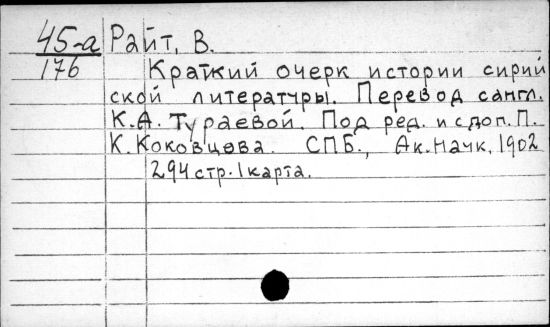 45-а Райт, В.
176 Краткий очерк истории сирий
ской литературы. Перевод с англ.
К.А. Тураевой. Под ред. и с доп. П.
К. Коковцова. СПБ., Ак. Наук, 1902
294 стр. 1 карта.